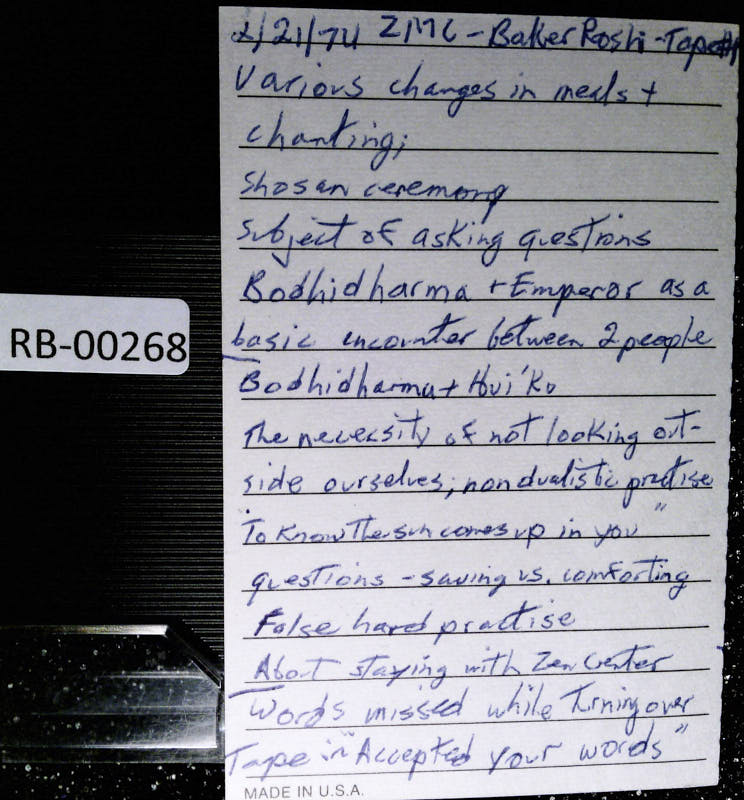 2/21/74 ZMC - Baker Roshi - Tape #1
Various changes in meals +
chanting;
Shosan ceremony
Subject of asking questions
Bodhidharma + Emperor as a
basic encounter between 2 people
RB-00268
Bodhidharma + Hui'Ko
The necessity of not looking out-
side ourselves; nondualistic practise
"To know the sun comes up in you"
questions - saving vs. comforting
False hard practise
About staying with Zen Center
Words missed while turning over
Tape in "Accepted your words"
MADE IN U.S.A.